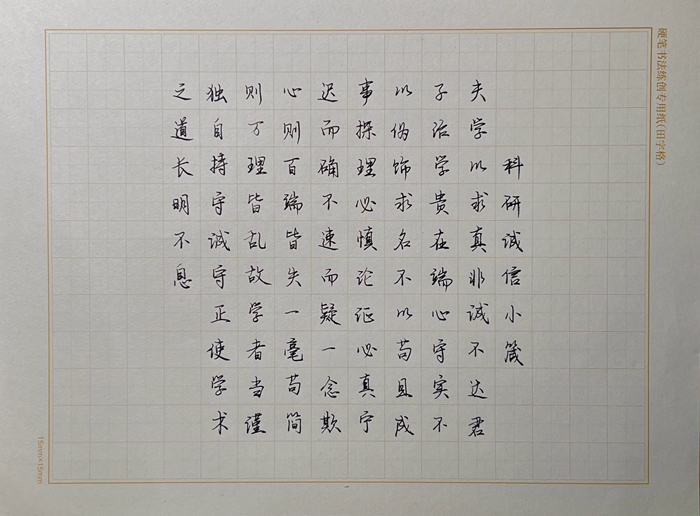 硬笔书法练创专用纸(田字格)
科研诚信小箴
夫学以求真非诚不达君
子治学贵在端心守实不
以伪饰求名不以苟且成
事探理必慎论证必真宁
迟而确不速而疑一念欺
心则百端皆失一毫苟简
则万理皆乱故学者当谨
独自持守诚守正使学术
之道长明不息
15mm×15mm